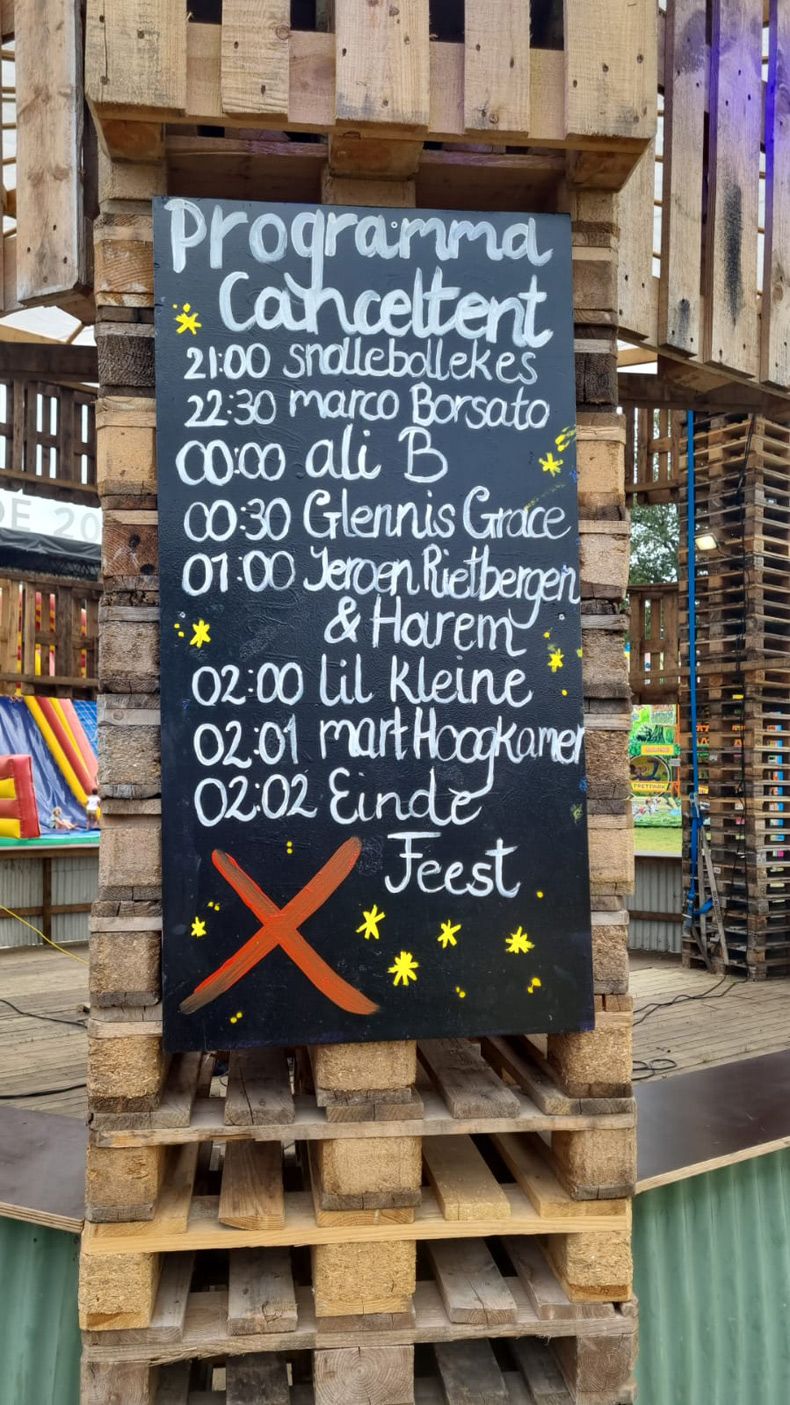 Programma
Canceltent
21:00 snollebollekes
22:30 marco Borsato
00:00 ali B
00:30 Glennis Grace
01:00 Jeroen Rietbergen
& Harem
02:00 lil Kleine
02:01 mart Hoogkamer
02:02 Einde
Feest
DE 20